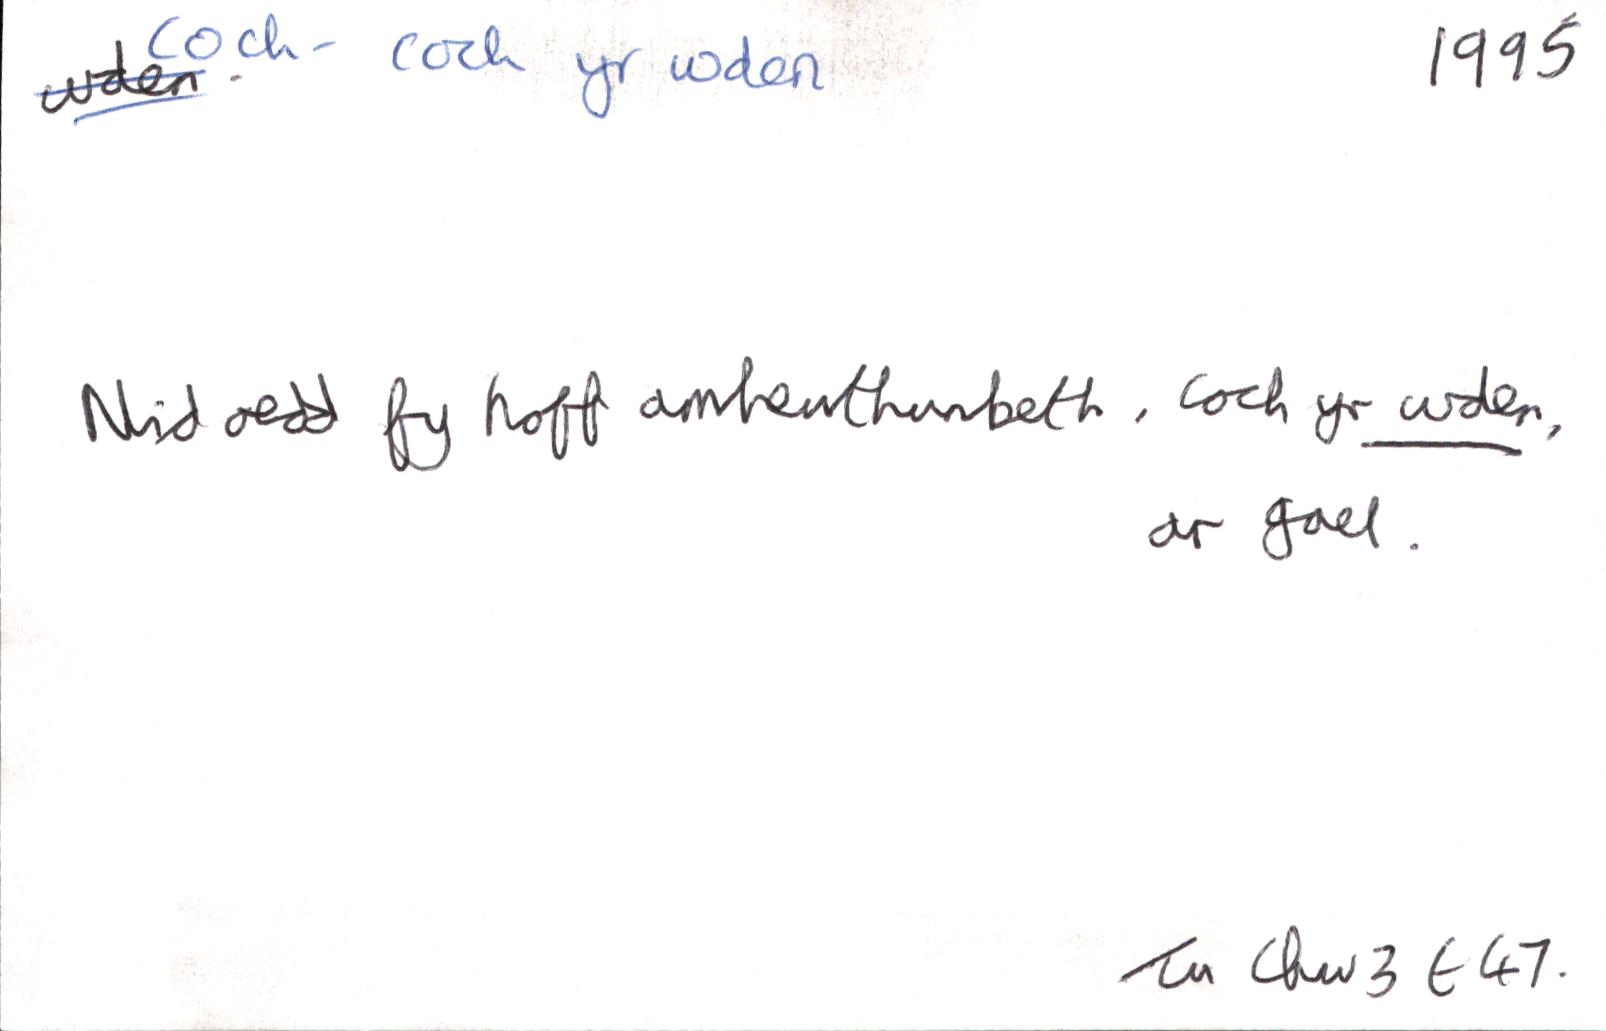 Coch - coch yr wden 1995
wden.
Nid oedd fy hoff amheuthunbeth, coch yr wden,
ar gael.
Chw 3 t 47.